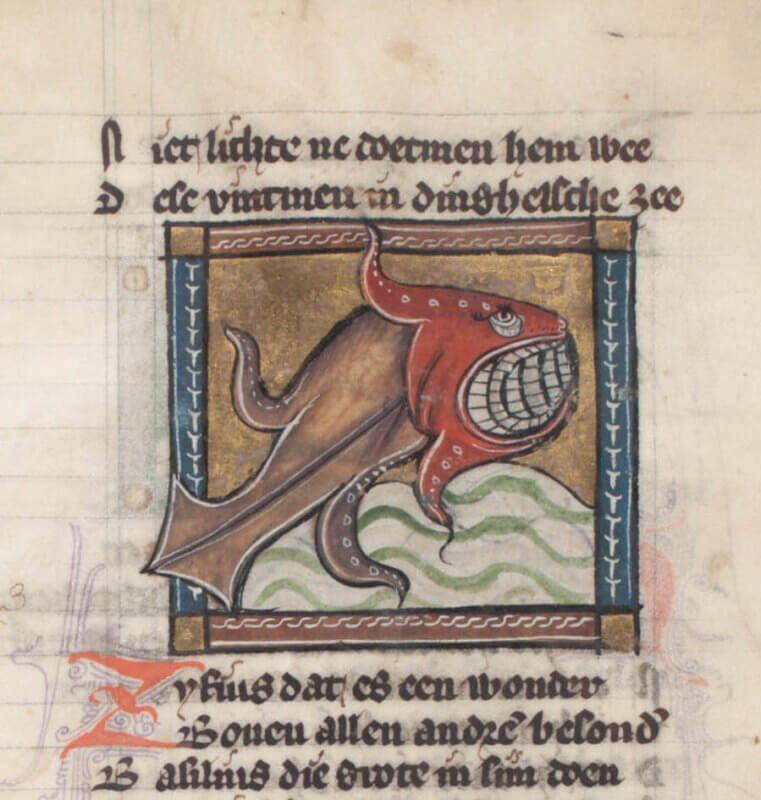 Niet lichte ne doetmen hem wee
Dese vintmen in dinghelsche zee
Zyfius dat es een wonder
Bouen allen andrē besond᾽
Basilius die grote in sijn doen